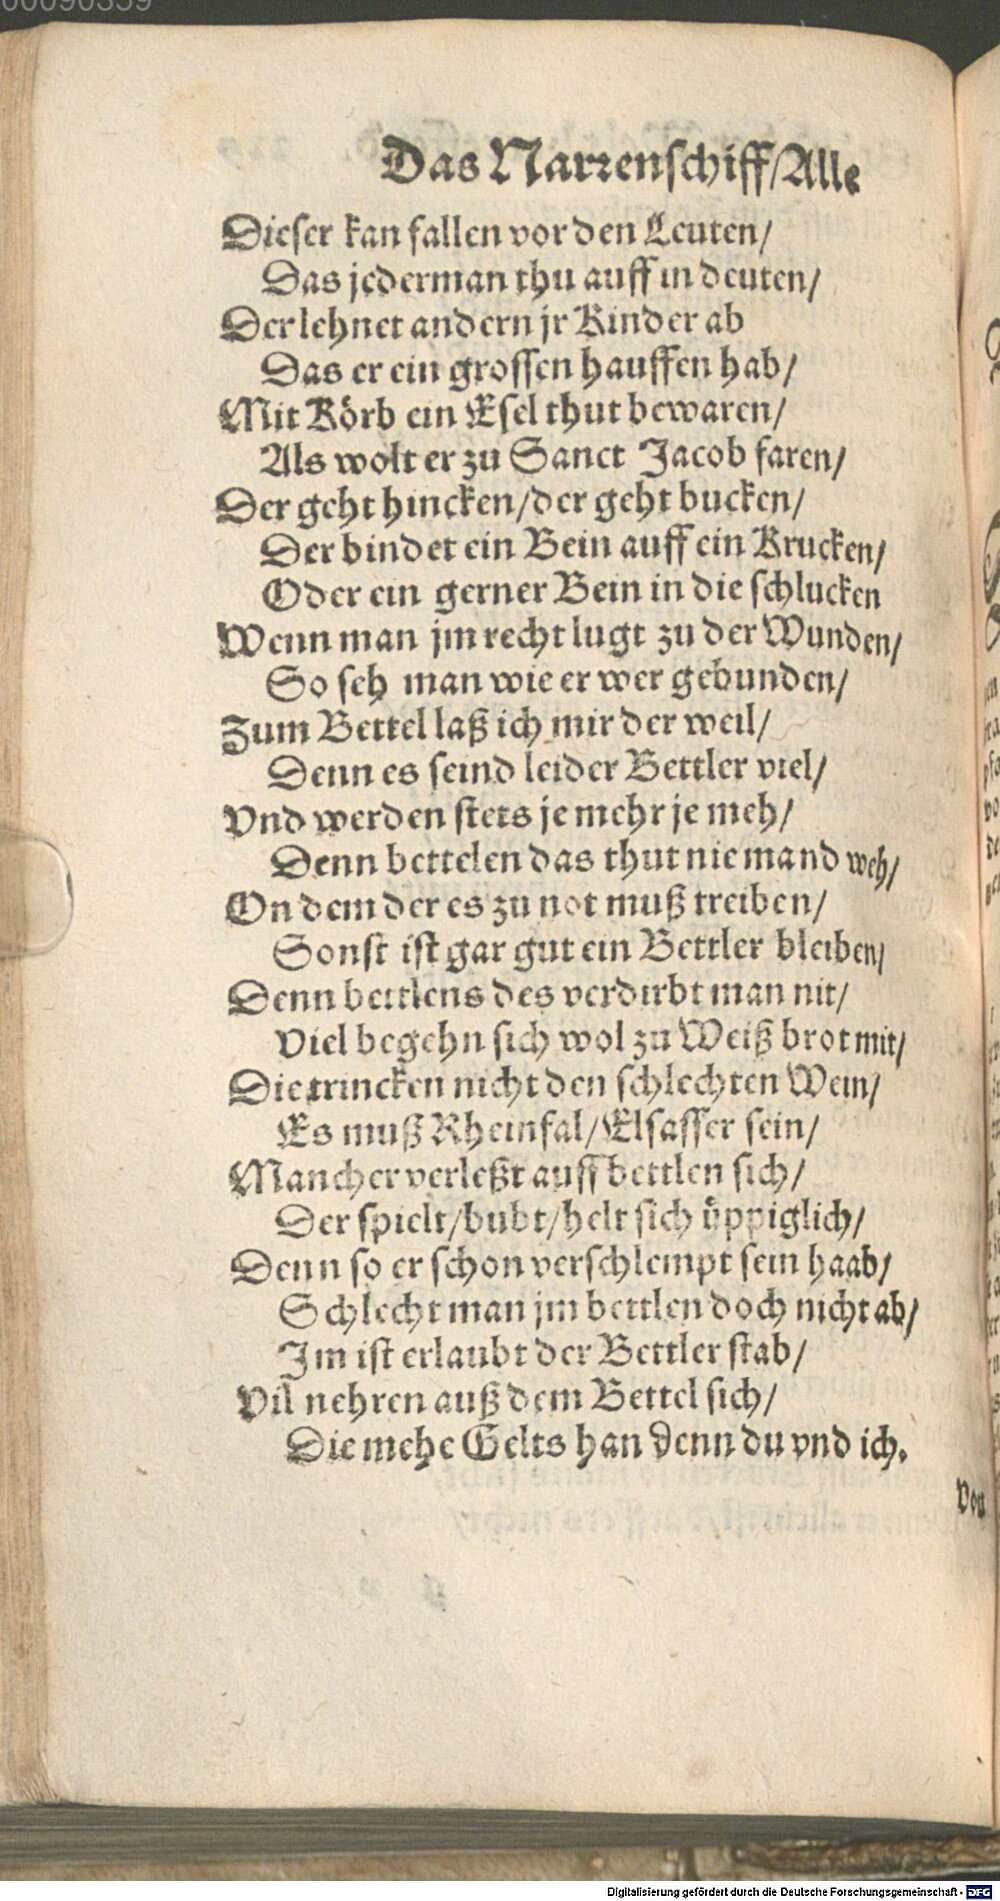 00090359
Das Narrenschiff/Alle
Dieser kan fallen vor den Leuten/
Das jederman thu auff in deuten/
Der lehnet andern jr Kinder ab
Das er ein grossen hauffen hab/
Mit Körb ein Esel thut bewaren/
Als wolt er zu Sanct Jacob faren/
Der geht hincken/der geht bucken/
Der bindet ein Bein auff ein Krucken/
Oder ein gerner Bein in die schlucken
Wenn man jm recht lugt zu der Wunden/
So seh man wie er wer gebunden/
Zum Bettel laß ich mir der weil/
Denn es seind leider Bettler viel/
Vnd werden stets je mehr je meh/
Denn bettelen das thut niemand weh/
On dem der es zu not muß treiben/
Sonst ist gar gut ein Bettler bleiben/
Denn bettlens des verdirbt man nit/
Viel begehn sich wol zu Weiß brot mit/
Die trincken nicht den schlechten Wein/
Es muß Rheinfal/Elsasser sein/
Mancher verleßt auff bettlen sich/
Der spielt/bubt/helt sich üppiglich/
Denn so er schon verschlempt sein haab/
Schlecht man jm bettlen doch nicht ab/
Im ist erlaubt der Bettler stab/
Vil nehren auß dem Bettel sich/
Die mehe Gelts han denn du vnd ich.
Von
Digitalisierung gefördert durch die Deutsche Forschungsgemeinschaft - DFG